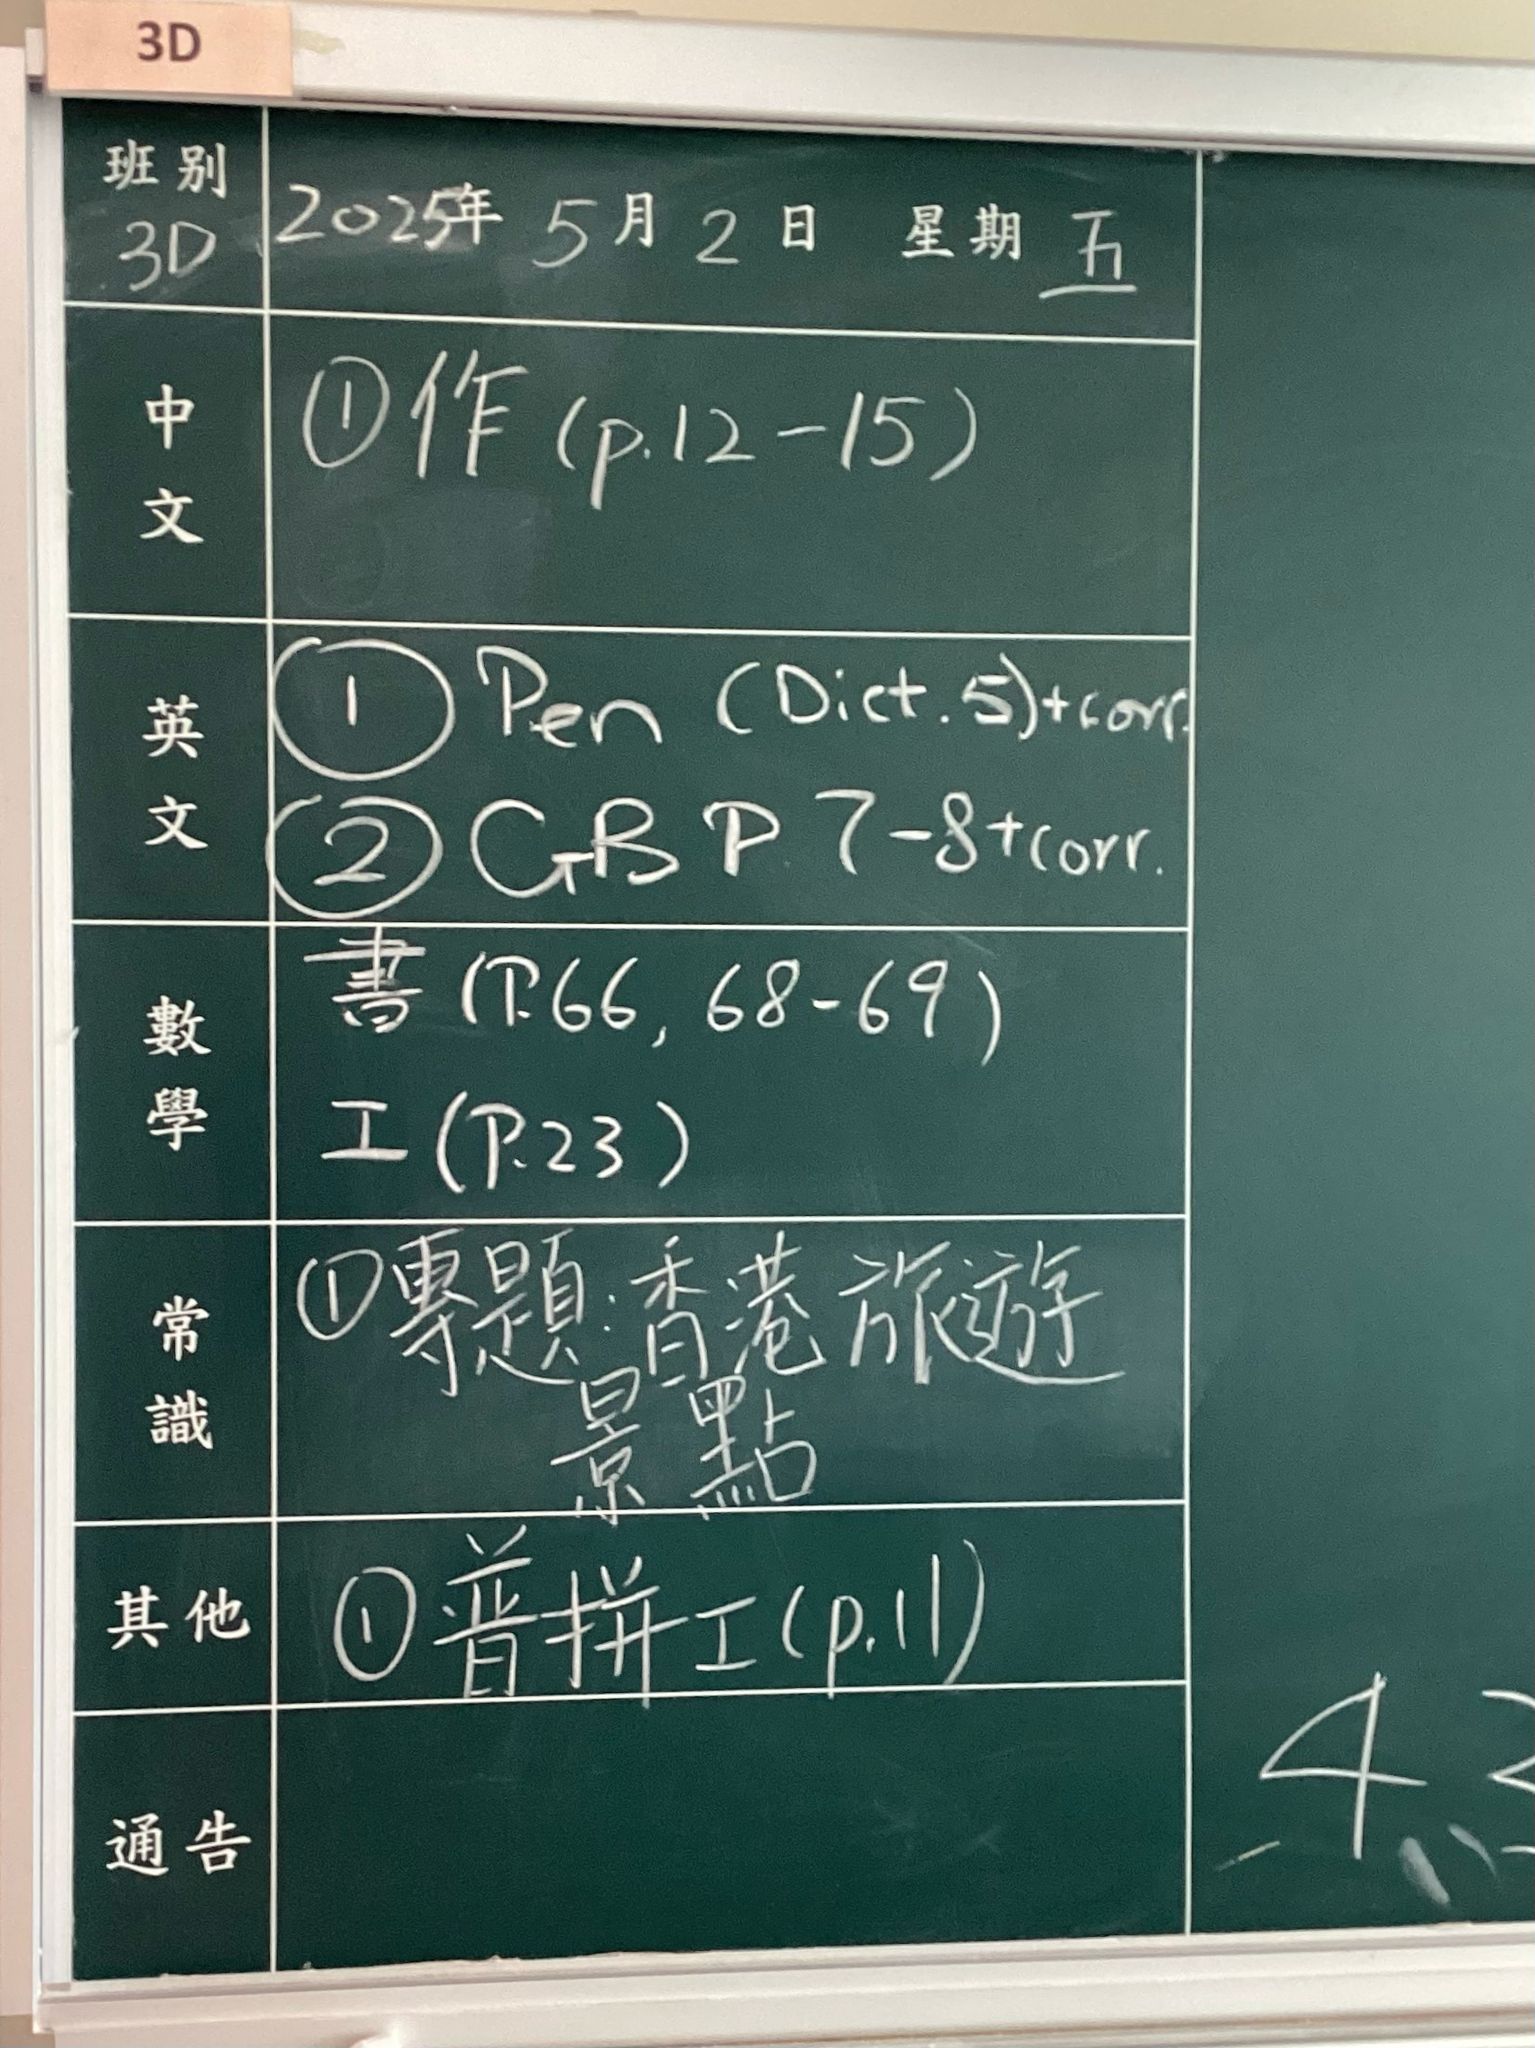 3D
班別 3D
2025年 5月 2日 星期 五
中文
①作 (p.12-15)
英文
① Pen (Dict. 5)+corr.
② GB P 7-8+corr.
數學
書 (P.66, 68-69)
工 (P.23)
常識
①專題:香港旅遊
景點
其他
①普拼工(p.11)
通告
4